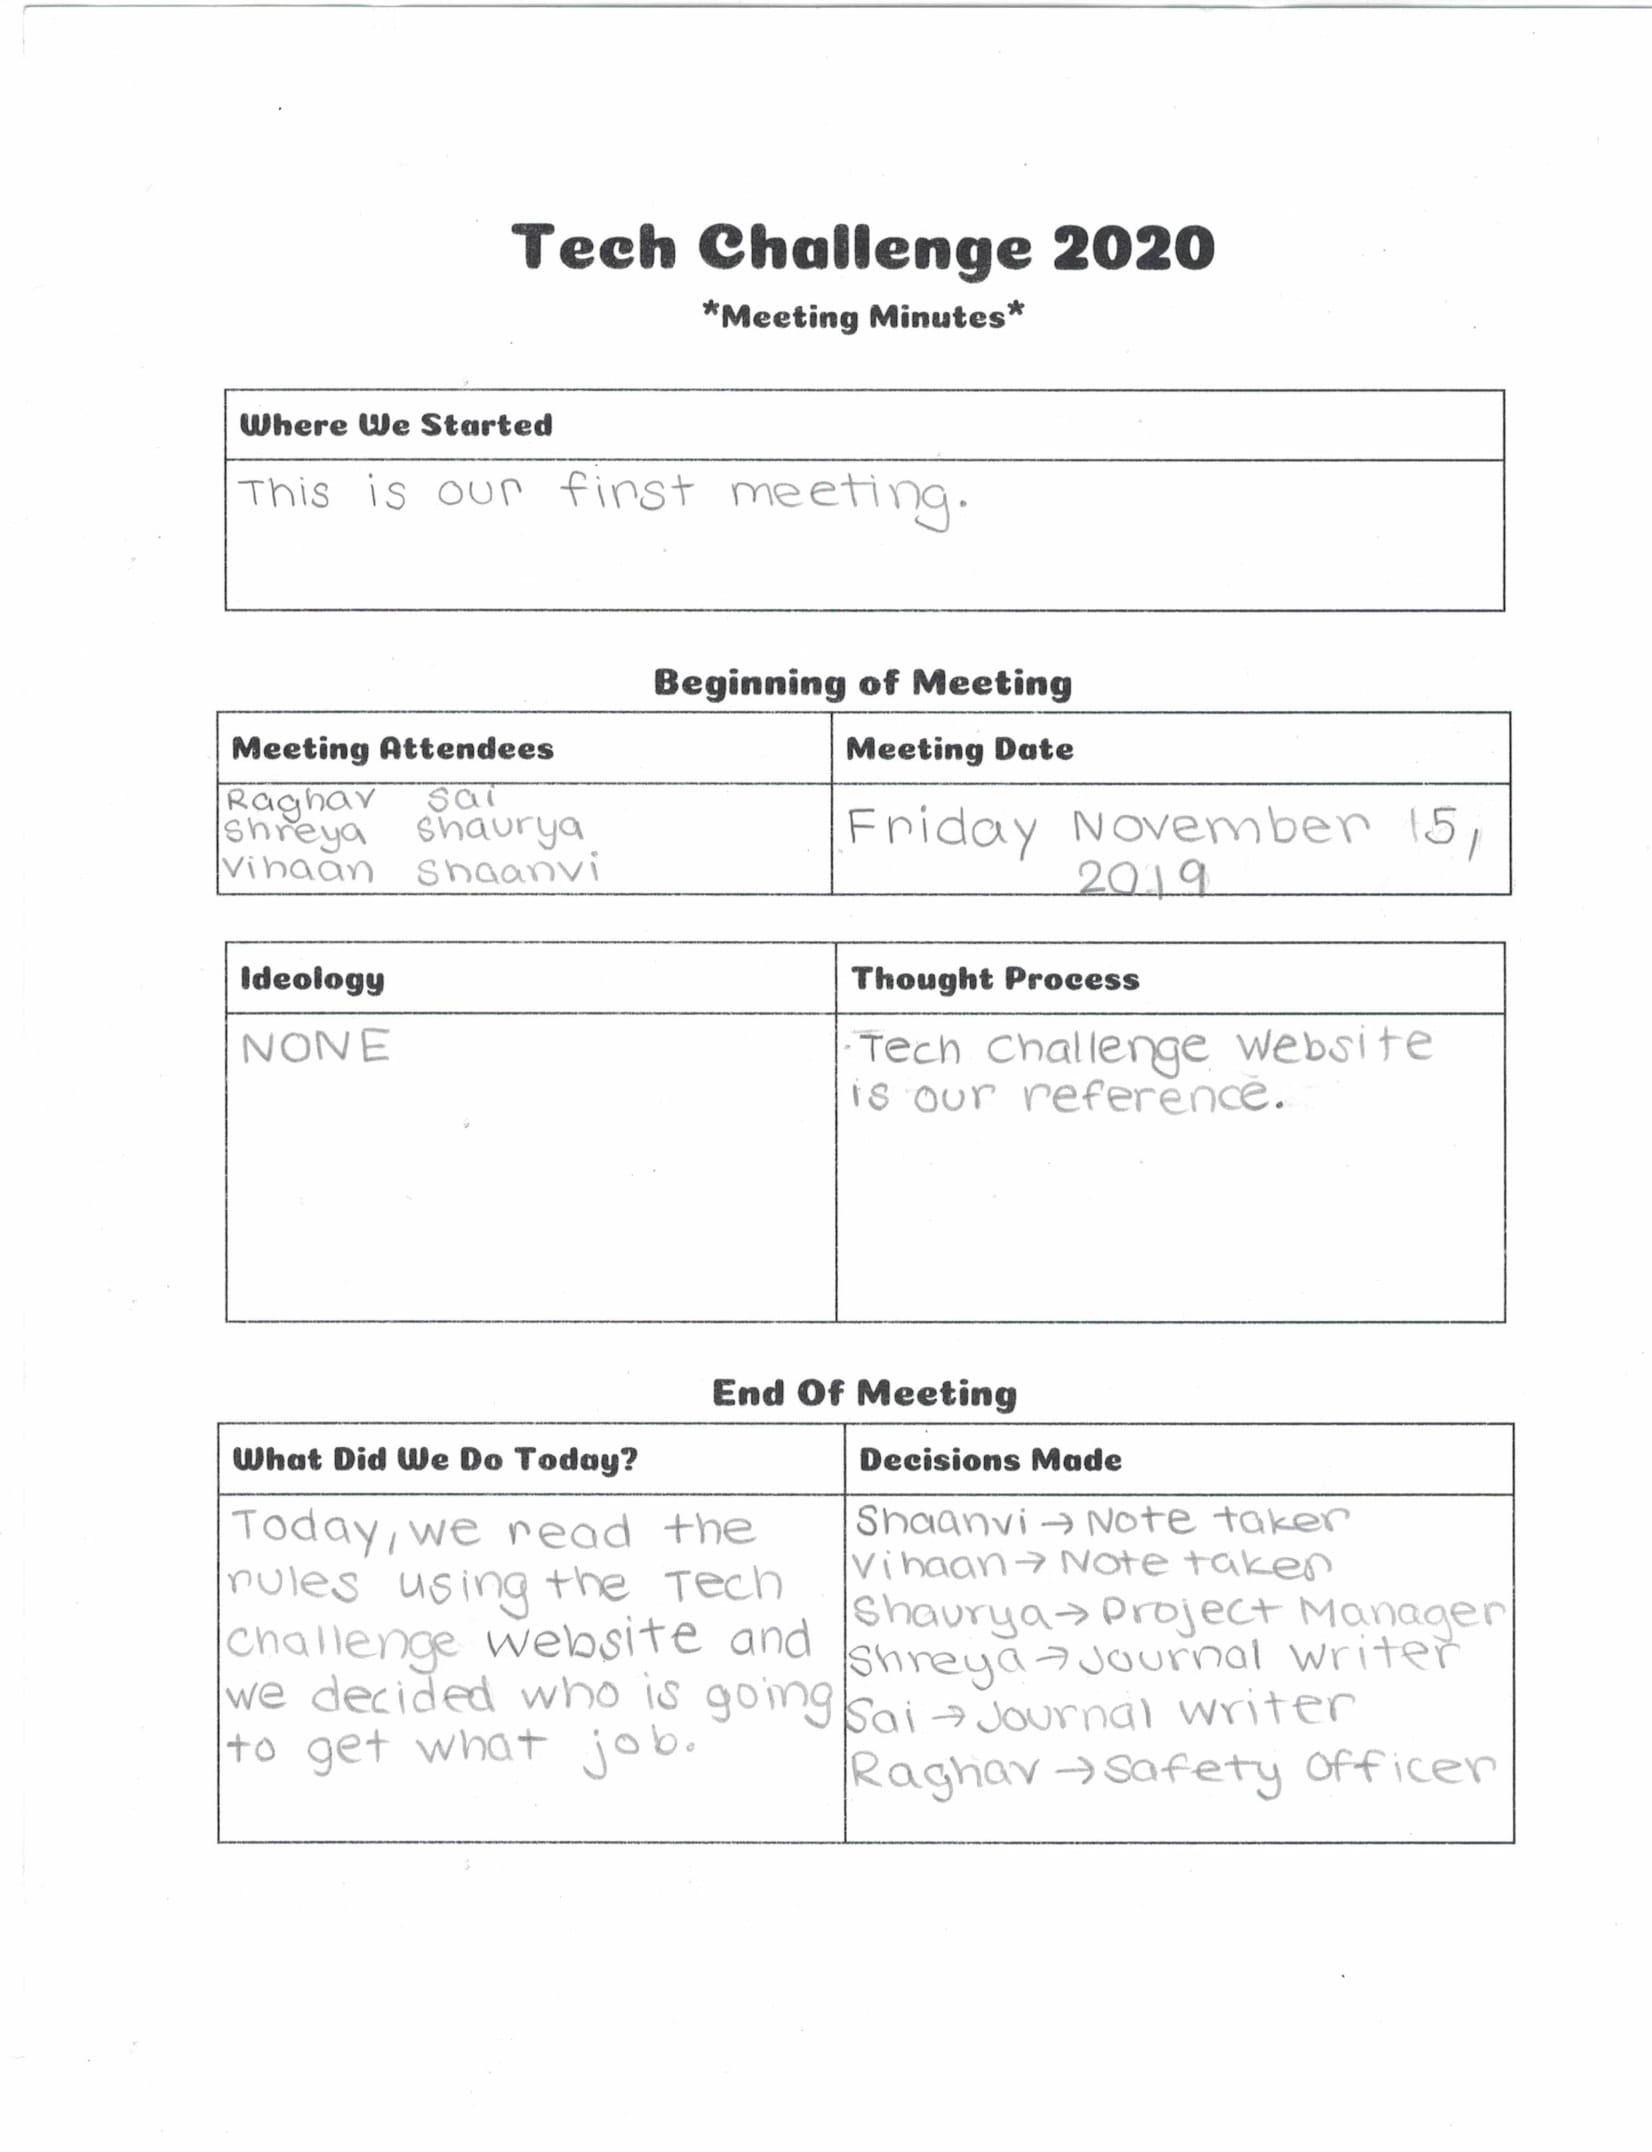 Tech Challenge 2020
*Meeting Minutes*
Where We Started
This is our first meeting.
Beginning of Meeting
Meeting Attendees
Meeting Date
Raghav Sai
Shreya Shaurya
Vihaan Shaanvi
Friday November 15,
2019
Ideology
Thought Process
NONE
Tech Challenge website
is our reference.
End Of Meeting
What Did We Do Today?
Decisions Made
Today, we read the
rules using the Tech
challenge website and
we decided who is going
to get what job.
Shaanvi → Note taker
Vihaan → Note taker
Shaurya → Project Manager
Shreya → Journal writer
Sai → Journal writer
Raghav → Safety Officer